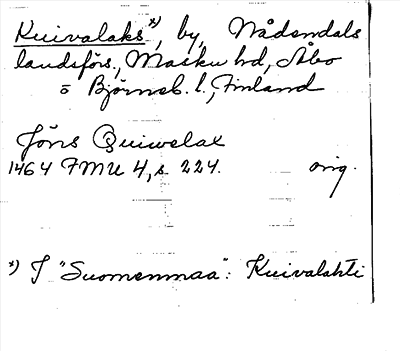 Kuivalaks*), by, Nådendals
landsförs., Masku hd, Åbo
o Björneb. l., Finland
Jöns Quiwelax
1464 FMU 4, s. 224. orig.
*) I "Suomenmaa": Kuivalahti